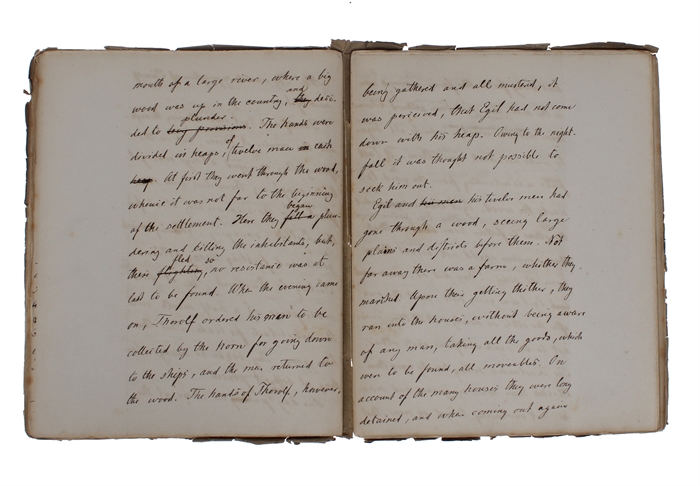 mouth of a large river, where a big
wood was up in the country, and they deci-
ded to plunder buy provisions. The hands were
divided in heaps, of twelve man in each
heap. At first they went through the wood,
whence it was not far to the beginning
of the settlement. Here they began fell a plun-
dering and killing the inhabitants, but,
these fled flighting, so no resistance was at
last to be found. When the evening came
on, Thorolf ordered his man to be
collected by the horn for going down
to the ships, and the men returned to
the wood. The hands of Thorolf, however,
being gathered and all mustered, it
was perceived, that Egil had not come
down with his heap. Owing to the night-
fall it was thought not possible to
seek him out.
Egil and his men his twelve men had
gone through a wood, seeing large
plains and districts before them. Not
far away there was a farm, whither they
marched. Upon their getting thither, they
ran into the houses, without being aware
of any man, taking all the goods, which
were to be found, all moveables. On
account of the many houses they were long
detained, and when coming out again